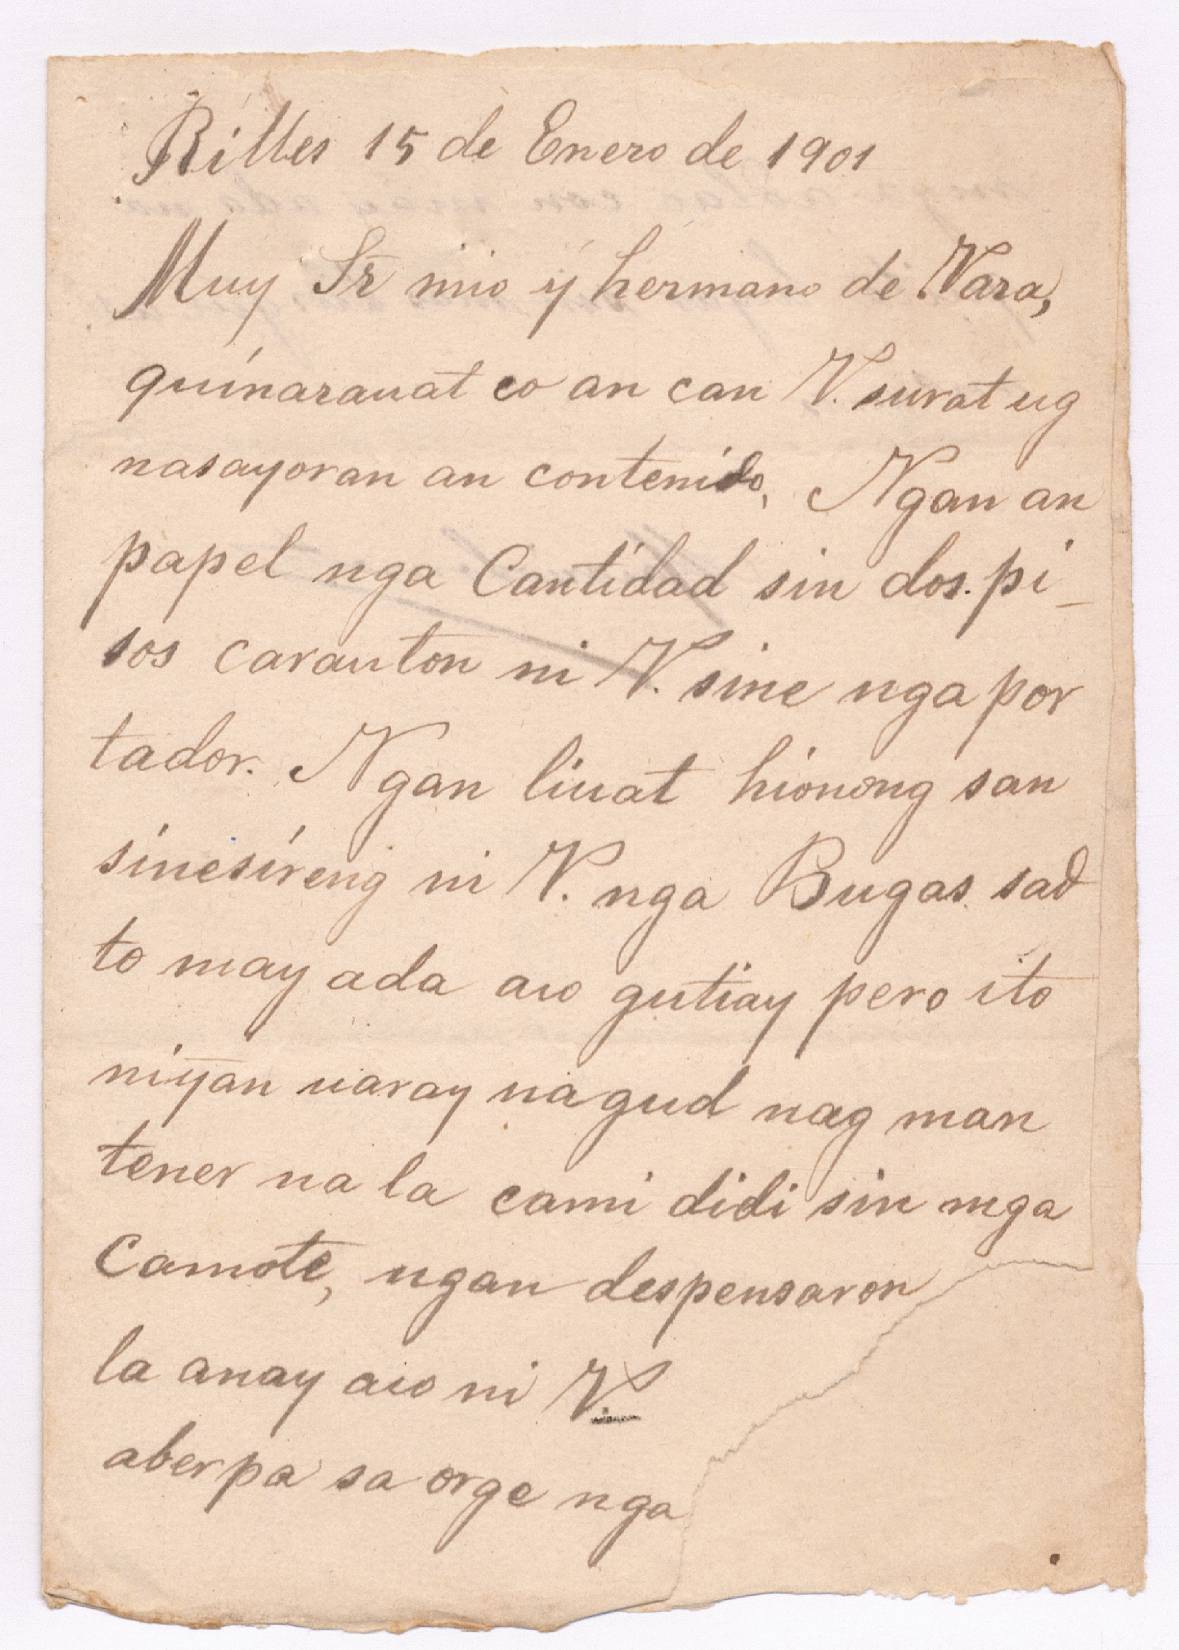 Rilles 15 de Enero de 1901
Muy Sr mio y hermano de Vara,
quinarauat co an can V. surat ug
nasayoran an contenido, Ngan an
papel nga Cantidad sin dos. pi_
sos carauton ni V. sine nga por
tador. Ngan liuat hionong san
sinesireng ni V. nga Bugas sad
to may ada aco gutiay pero ito
niyan uaray na gud nag man
tener na la cami didi sin mga
Camote, ngan despensaron
la anay aco ni V.
aber pa sa orge nga